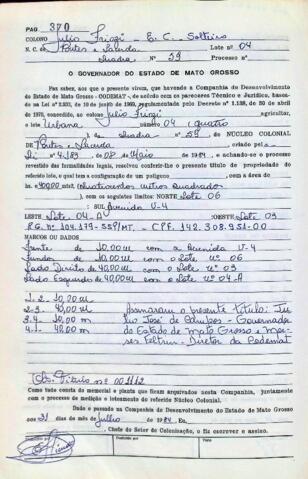 PAG 370
COLONO Julio Friozi - E. C. Solteiro
N. C. de Pontes e Lacerda LOTE nº 04
Quadra nº 59 Processo nº
O GOVERNADOR DO ESTADO DE MATO GROSSO
Faz saber, aos que a presente virem, que havendo a Companhia de Desenvolvimento
do Estado de Mato Grosso - CODEMAT -, de acôrdo com os pareceres Técnico e Jurídico, basean-
do na Lei nº 2.933, de 19 de junho de 1969, regulamentada pelo Decreto nº 1.138, de 30 de abril
de 1970, concedido, ao colono Julio Friozi agricultor,
o lote Urbano nº 04 quatro
Quadra nº 59 DO NÚCLEO COLONIAL
DE Pontes e Lacerda criado pela
Lei nº 4.189 de 08 de Maio 1984, e achando-se o processo
revestido das formalidades legais, resolveu conferir-lhe o presente título de propriedade do
referido lote, que está com a configuração de um polígono com a área de
400,00 mt² (Quatrocentos metros quadrados
), com os seguintes limites: NORTE Lote 06
SUL Avenida V-4
LESTE Lote 04-A OESTE Lote 03
R.G. nº 104.179-SSP/MT. - CPF. 142.308.951-00
MARCOS OU DADOS
Frente de 10,00m com a Avenida V-4
Fundos de 10,00m com o Lote nº 06
Lado Direito de 40,00m com o Lote nº 03
Lado Esquerdo de 40,00m com o Lote nº 04-A
1-2- 10,00m
2-3- 40,00m Assinaram o presente título: Ju-
3-4- 10,00 m lio José de Campos - Governador
4-1- 40,00m do Estado de Mato Grosso e
Feltrin - Diretor da Codemat
Obs. Título nº 001112
Tudo conste do memorial e planta que ficam arquivados nesta Companhia, juntamente
com o processo de medição e loteamento do referido Núcleo Colonial.
Dado e passado na Companhia de Desenvolvimento do Estado de Mato Grosso
aos 31 dias do mês de Julho de 1984. Eu
Chefe do Setor de Colonização, o fiz escrever e assino.
Escriturado por
Conferido por
Visto